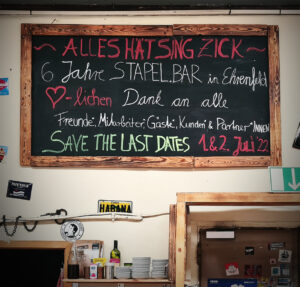 ~ ALLES HAT SING ZICK ~
6 Jahre STAPEL.BAR in Ehrenfeld
♡-lichen Dank an alle
Freunde*, Mitarbeiter*, Gäste*, Kunden* & Partner*INNEN
SAVE THE LAST DATES 1. & 2. Juli 22
HABANA